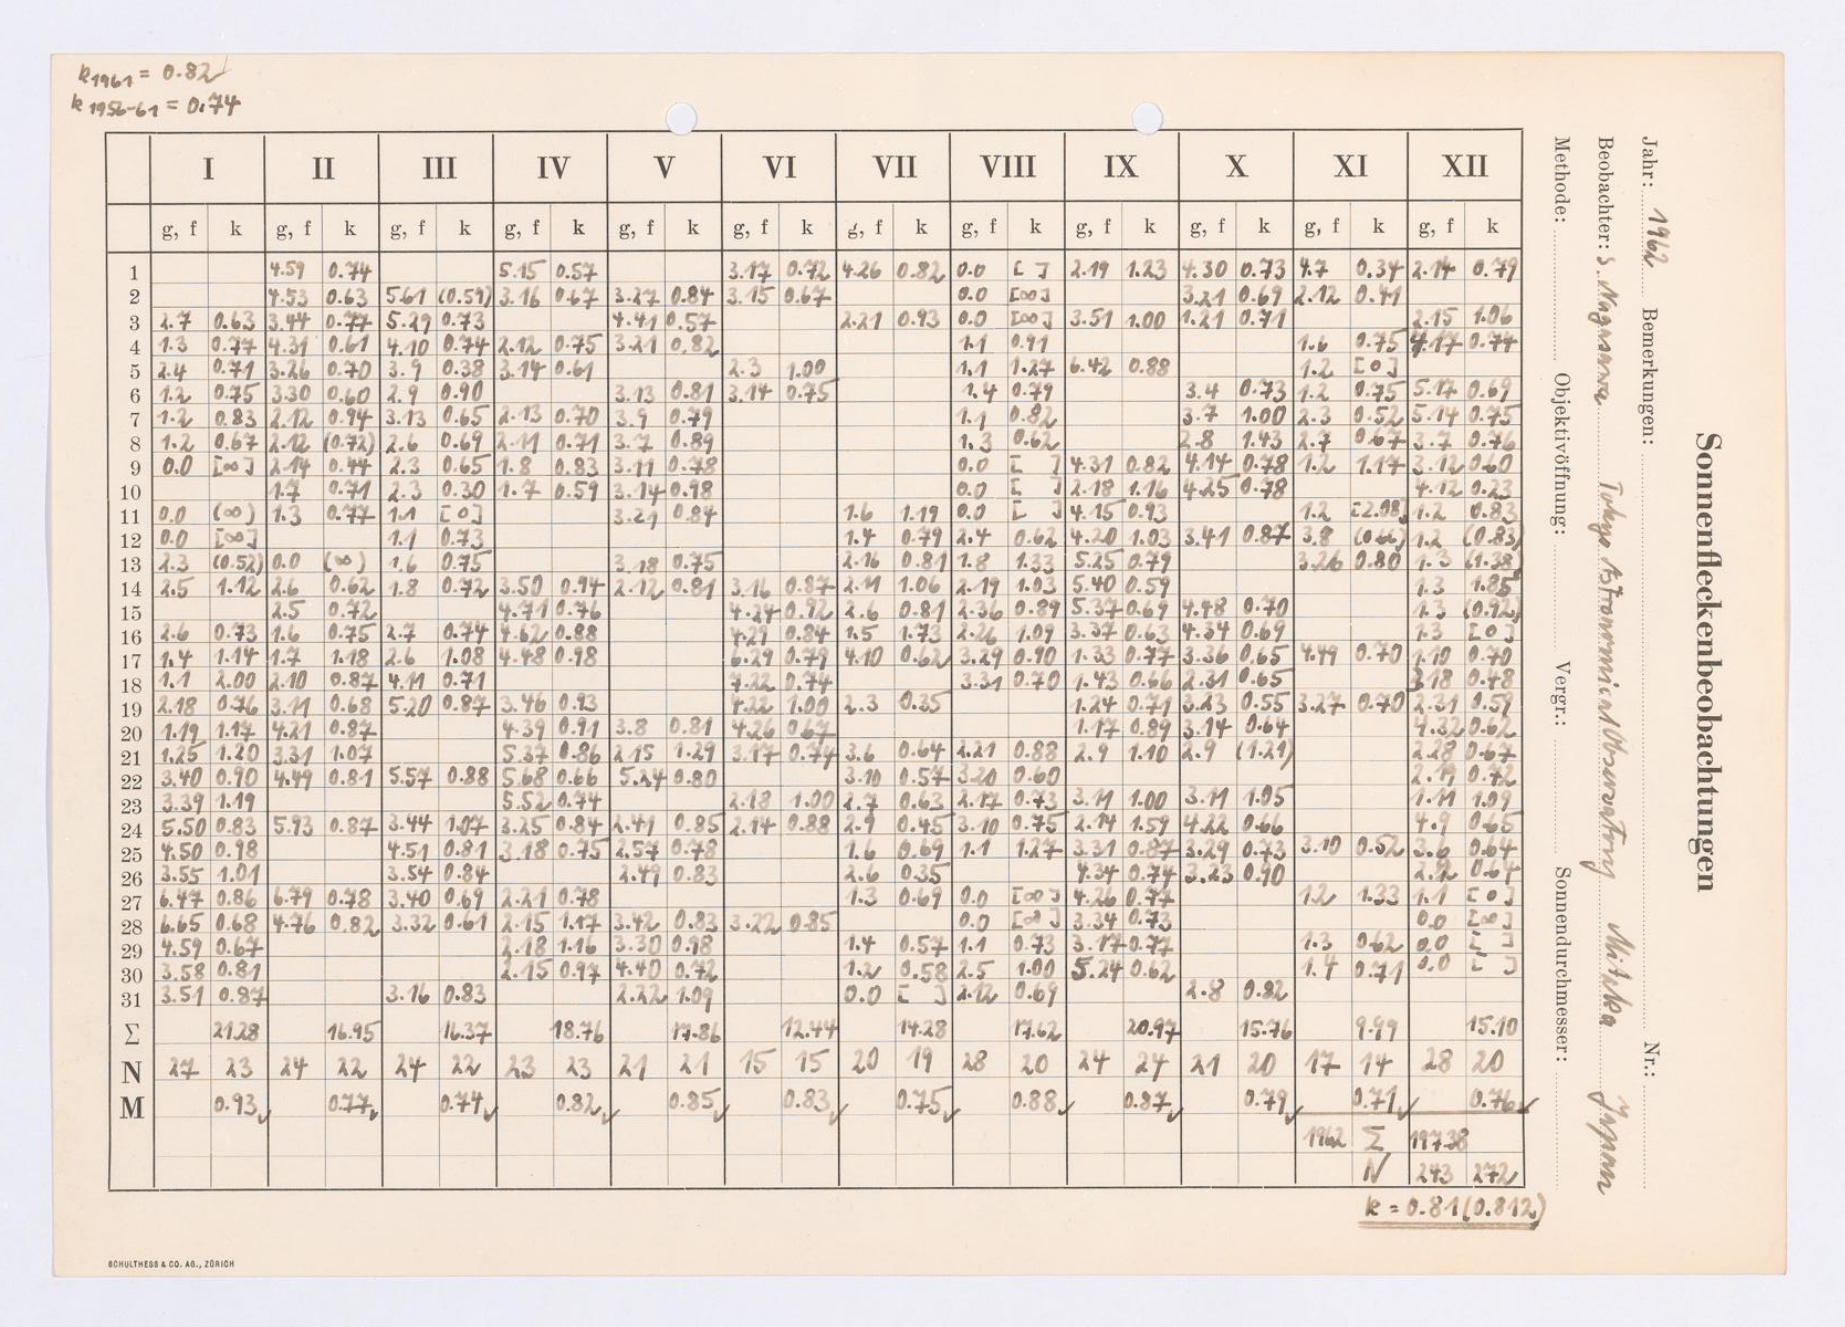 k1961 = 0.82
k1956-61 = 0.74
Sonnenfleckenbeobachtungen
Jahr: 1962 Bemerkungen: Nr.:
Beobachter: S. Nagasawa Tokyo Astronomical Observatory Mitaka Japan
Methode: Objektivöffnung: Vergr.: Sonnendurchmesser:
I II III IV V VI VII VIII IX X XI XII
g, f k g, f k g, f k g, f k g, f k g, f k g, f k g, f k g, f k g, f k g, f k g, f k
1 4.59 0.74 5.15 0.57 3.17 0.72 4.26 0.82 0.0 [ ] 2.19 1.23 4.30 0.73 4.7 0.34 2.14 0.79
2 4.53 0.63 5.61 (0.59) 3.16 0.67 3.27 0.84 3.15 0.67 0.0 [∞] 3.21 0.69 2.12 0.41
3 2.7 0.63 3.44 0.77 5.29 0.73 4.41 0.57 2.21 0.93 0.0 [∞] 3.51 1.00 1.21 0.71 2.15 1.06
4 1.3 0.77 4.31 0.61 4.10 0.74 2.12 0.75 3.21 0.82 1.1 0.91 1.6 0.75 4.17 0.74
5 2.4 0.71 3.26 0.70 3.9 0.38 3.14 0.61 2.3 1.00 1.1 1.27 6.42 0.88 1.2 [0]
6 1.2 0.75 3.30 0.60 2.9 0.90 3.13 0.81 3.14 0.75 1.4 0.79 3.4 0.73 1.2 0.75 5.17 0.69
7 1.2 0.83 2.12 0.94 3.13 0.65 2.13 0.70 3.9 0.79 1.1 0.82 3.7 1.00 2.3 0.52 5.14 0.75
8 1.2 0.67 2.12 (0.72) 2.6 0.69 2.11 0.71 3.7 0.89 1.3 0.62 2.8 1.43 2.7 0.67 3.7 0.76
9 0.0 [∞] 2.14 0.44 2.3 0.65 1.8 0.83 3.11 0.78 0.0 [ ] 4.31 0.82 4.14 0.78 1.2 1.17 3.12 0.60
10 1.7 0.71 2.3 0.30 1.7 0.59 3.14 0.98 0.0 [ ] 2.18 1.16 4.25 0.78 4.12 0.23
11 0.0 (∞) 1.3 0.77 1.1 [0] 3.21 0.84 1.6 1.19 0.0 [ ] 4.15 0.93 1.2 [2.08] 1.2 0.83
12 0.0 [∞] 1.1 0.73 1.4 0.79 2.4 0.62 4.20 1.03 3.41 0.87 3.8 (0.66) 1.2 (0.83)
13 2.3 (0.52) 0.0 (∞) 1.6 0.75 3.18 0.75 2.16 0.81 1.8 1.33 5.25 0.79 3.26 0.80 1.3 (1.38)
14 2.5 1.12 2.6 0.62 1.8 0.72 3.50 0.94 2.12 0.81 3.16 0.87 2.11 1.06 2.19 1.03 5.40 0.59 1.3 1.85
15 2.5 0.72 4.71 0.76 4.24 0.92 2.6 0.81 2.36 0.89 5.37 0.69 4.48 0.70 1.3 (0.92)
16 2.6 0.73 1.6 0.75 2.7 0.74 4.62 0.88 4.29 0.84 1.5 1.73 2.26 1.09 3.37 0.63 4.34 0.69 1.3 [0]
17 1.4 1.14 1.7 1.18 2.6 1.08 4.48 0.98 6.29 0.79 4.10 0.62 3.29 0.90 1.33 0.77 3.36 0.65 4.49 0.70 1.10 0.70
18 1.1 2.00 2.10 0.87 4.11 0.71 7.22 0.74 3.31 0.70 1.43 0.66 2.31 0.65 3.18 0.48
19 2.18 0.76 3.11 0.68 5.20 0.87 3.46 0.93 4.22 1.00 2.3 0.35 1.24 0.71 3.23 0.55 3.27 0.70 2.31 0.59
20 1.19 1.17 4.21 0.87 4.39 0.91 3.8 0.81 4.26 0.67 1.17 0.89 3.14 0.64 4.32 0.62
21 1.25 1.20 3.31 1.07 5.37 0.86 2.15 1.29 3.17 0.74 3.6 0.64 2.21 0.88 2.9 1.10 2.9 (1.21) 2.28 0.67
22 3.40 0.90 4.49 0.81 5.57 0.88 5.68 0.66 5.24 0.80 3.10 0.57 3.20 0.60 2.19 0.72
23 3.39 1.19 5.52 0.74 2.18 1.00 2.7 0.63 2.17 0.73 3.11 1.00 3.11 1.05 1.11 1.09
24 5.50 0.83 5.93 0.87 3.44 1.07 3.25 0.84 2.41 0.85 2.14 0.88 2.9 0.45 3.10 0.75 2.14 1.59 4.22 0.66 4.9 0.65
25 4.50 0.98 4.51 0.81 3.18 0.75 2.57 0.78 1.6 0.69 1.1 1.27 3.31 0.87 3.29 0.73 3.10 0.52 3.6 0.64
26 3.55 1.01 3.54 0.84 2.49 0.83 2.6 0.35 4.34 0.74 3.23 0.90 2.2 0.64
27 6.47 0.86 6.79 0.78 3.40 0.69 2.21 0.78 1.3 0.69 0.0 [∞] 4.26 0.77 1.2 1.33 1.1 [0]
28 6.65 0.68 4.76 0.82 3.32 0.61 2.15 1.17 3.42 0.83 3.22 0.85 0.0 [∞] 3.34 0.73 0.0 [∞]
29 4.59 0.67 2.18 1.16 3.30 0.98 1.4 0.57 1.1 0.73 3.17 0.77 1.3 0.62 0.0 [ ]
30 3.58 0.81 2.15 0.97 4.40 0.72 1.2 0.58 2.5 1.00 5.24 0.62 1.4 0.71 0.0 [ ]
31 3.51 0.87 3.16 0.83 2.22 1.09 0.0 [ ] 2.12 0.69 2.8 0.82
Σ 21.28 16.95 16.37 18.76 17.86 12.44 14.28 17.62 20.97 15.76 9.99 15.10
N 27 23 24 22 24 22 23 23 21 21 15 15 20 19 28 20 24 24 21 20 17 14 28 20
M 0.93 0.77 0.74 0.82 0.85 0.83 0.75 0.88 0.87 0.79 0.71 0.76
1962 Σ 197.38
N 243 272
k = 0.81 (0.812)
SCHULTHESS & CO. AG., ZÜRICH